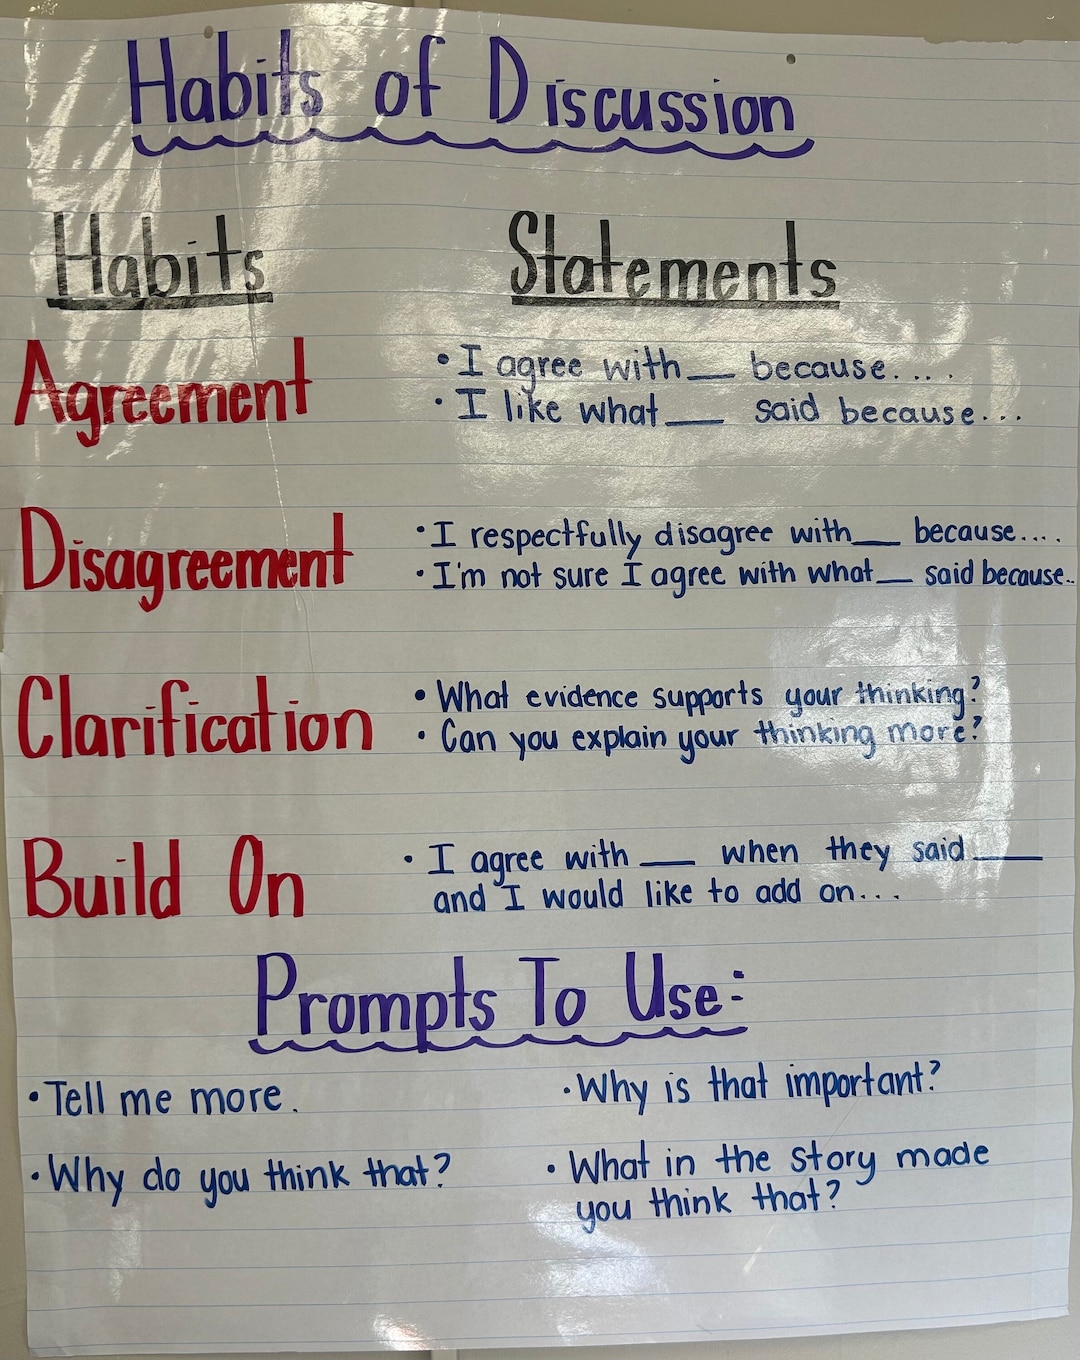 Habits of Discussion
Habits Statements
Agreement
• I agree with___ because....
• I like what___ said because...
Disagreement
• I respectfully disagree with___ because....
• I'm not sure I agree with what___ said because..
Clarification
• What evidence supports your thinking?
• Can you explain your thinking more?
Build On
• I agree with ___ when they said ____
and I would like to add on...
Prompts To Use:
• Tell me more.
• Why is that important?
• Why do you think that?
• What in the story made
you think that?